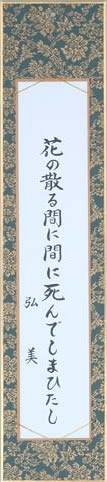 花の散る間に間に死んでしまひたし
弘美